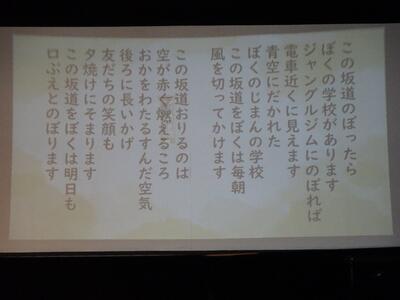 この坂道のぼったら
ぼくの学校があります
ジャングルジムにのぼれば
電車近くに見えます
青空にだかれた
ぼくのじまんの学校
この坂道をぼくは毎朝
風を切ってかけます
この坂道おりるのは
空が赤く燃えるころ
おかをわたるすんだ空気
後ろに長いかげ
友だちの笑顔も
夕焼けにそまります
この坂道をぼくは明日も
口ぶえとのぼります